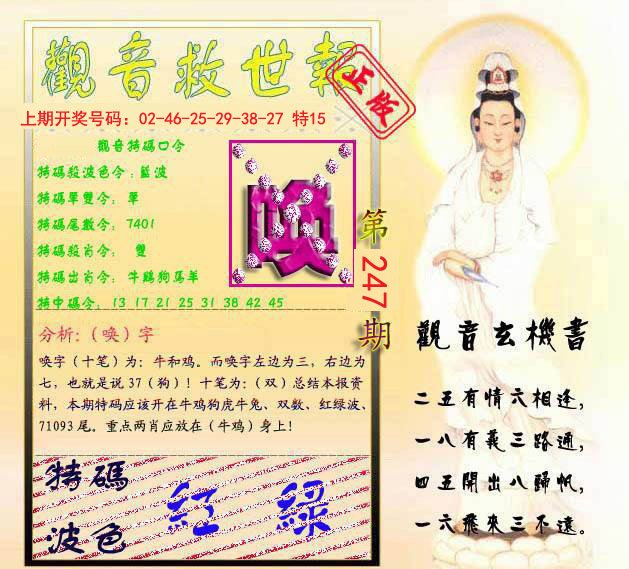 觀音救世報
正版
上期开奖号码：02-46-25-29-38-27 特15
觀音特碼口令
特碼殺波色令：藍波
特碼單雙令： 單
特碼尾數令： 7401
特碼殺肖令： 雙
特碼出肖令： 牛鷄狗馬羊
特中碼令： 13 17 21 25 31 38 42 45
唤
第247期
分析:（唤）字
唤字（十笔）为：牛和鸡。而唤字左边为三，右边为
七，也就是说 37（狗）！十笔为:（双）总结本报资
料，本期特码应该开在牛鸡狗虎牛兔、双数、红绿波、
71093 尾。重点两肖应放在（牛鸡）身上！
特碼
波色
紅 綠
觀音玄機書
二五有情六相逢,
一八有義三路通,
四五開出八歸帆,
一六飛來三不遠。